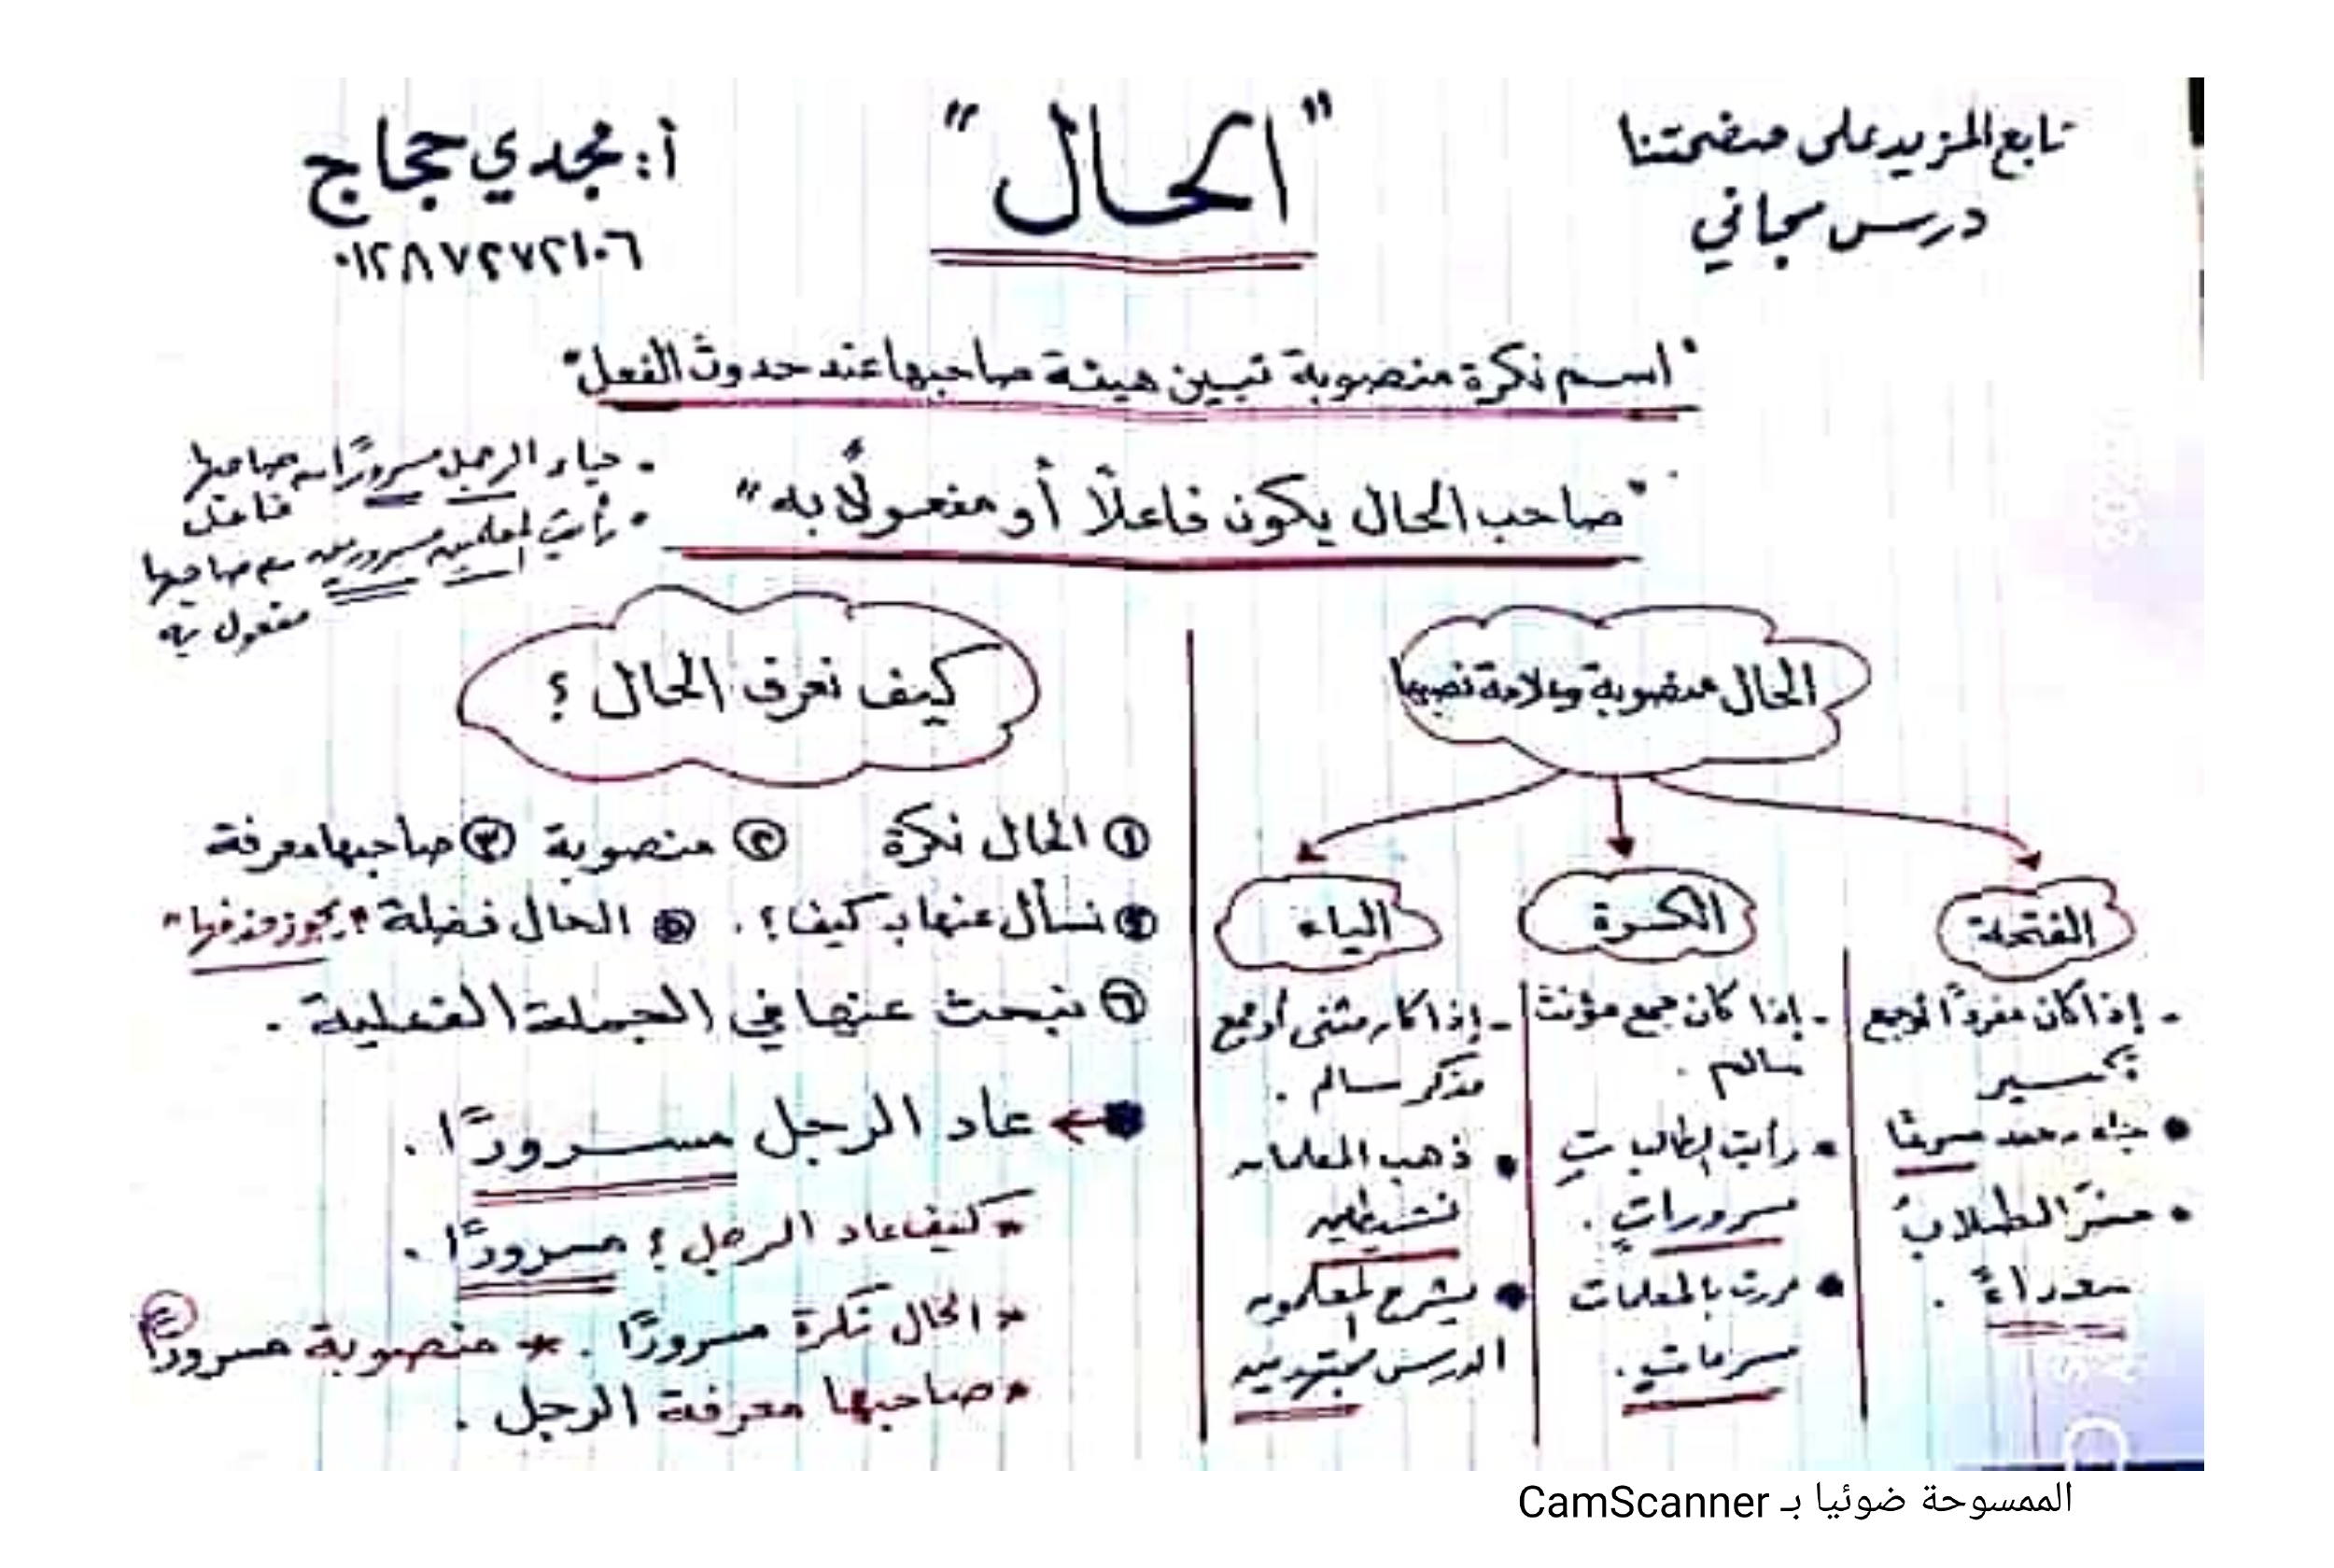 تابع المزيد على صفحتنا
درس مجاني
"الحال"
أ: مجدي حجاج
٠١٢٨٧٢٧٢١٠٦
"اسم نكرة منصوبة تبين هيئة صاحبها عند حدوث الفعل"
"صاحب الحال يكون فاعلًا أو مفعولًا به"
- جاء الرجل مسرورًا صاحبها
فاعل
• رأيت المعلمين مسرورين صاحبها
مفعول به
الحال منصوبة وعلامة نصبها
الفتحة
- إذا كان مفردًا أو جمع
تكسير
• جاء محمد مسرعًا
• الطلاب
سعداءً .
الكسرة
- إذا كان جمع مؤنث
سالم .
• رأيت الطالباتِ
مسروراتٍ .
• مررت بالمعلمات
مسرعاتٍ .
الياء
- إذا كان مثنى أو جمع
مذكر سالم .
• ذهب المعلمان
نشيطين
• يشرح المعلمون
الدرس مجتهدين
كيف نعرف الحال ؟
١ الحال نكرة ٢ منصوبة ٣ صاحبها معرفة
٤ نسأل عنها بـ كيف ؟ . ٥ الحال فضلة "يجوز حذفها"
٦ نبحث عنها في الجملة الفعلية .
← عاد الرجل مسرورًا .
* كيف عاد الرجل ؟ مسرورًا .
* الحال نكرة مسرورًا . * منصوبة مسرورًا
* صاحبها معرفة الرجل .
الممسوحة ضوئيا بـ CamScanner